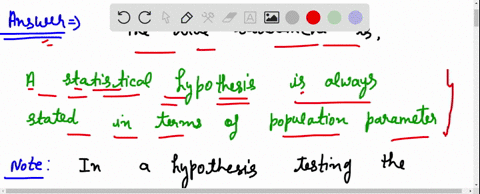 Answer=) The true statement is,
A statistical hypothesis is always
stated in terms of population parameter
Note: In a hypothesis testing the